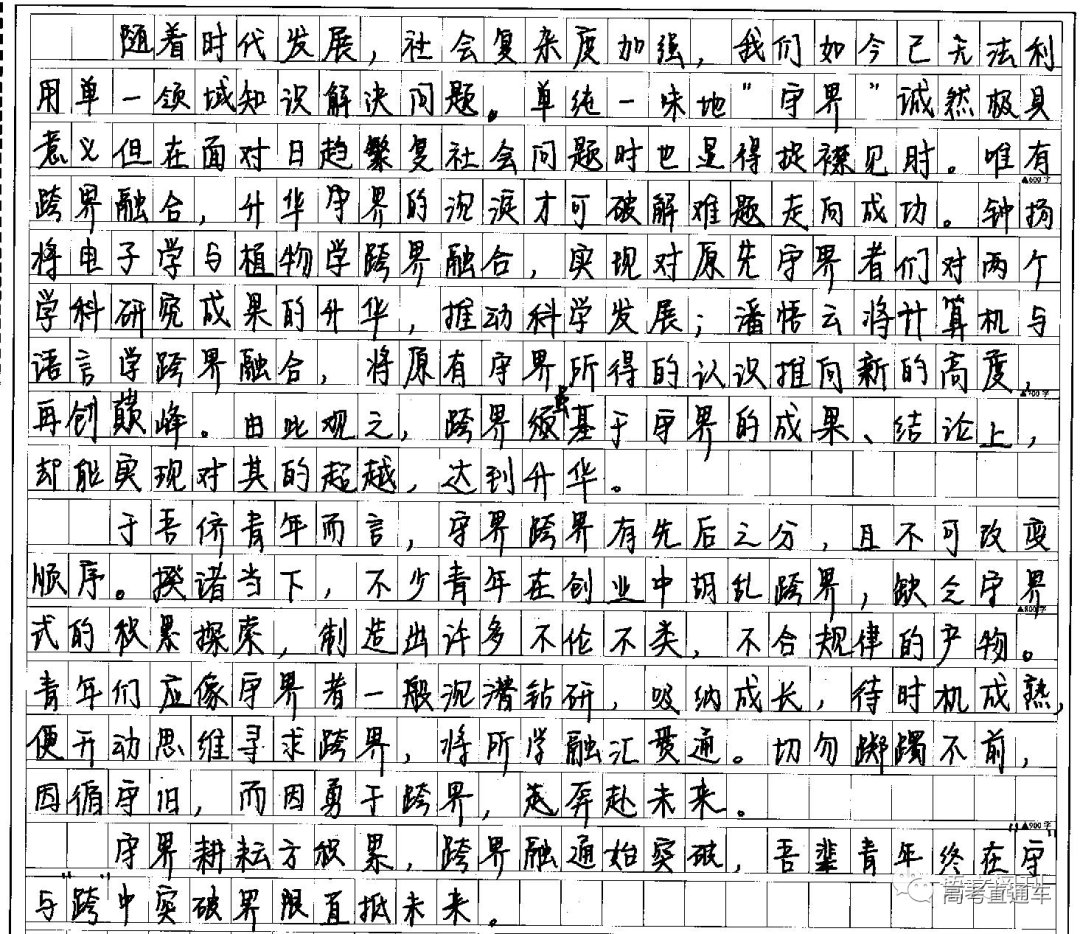 随着时代发展，社会复杂度加强，我们如今已无法利
用单一领域知识解决问题。单纯一味地"守界"诚然极具
意义但在面对日趋繁复社会问题时也显得捉襟见肘。唯有
▲600字
跨界融合，升华守界的沉淀才可破解难题走向成功。钟扬
将电子学与植物学跨界融合，实现对原先守界者们对两个
学科研究成果的升华，推动科学发展；潘悟云将计算机与
语言学跨界融合，将原有守界所得的认识推向新的高度，
▲700字
再创巅峰。由此观之，跨界须基于守界的成果、结论上，
却能实现对其的超越，达到升华。
于吾侪青年而言，守界跨界有先后之分，且不可改变
顺序。揆诸当下，不少青年在创业中胡乱跨界，缺乏守界
▲800字
式的积累探索，制造出许多不伦不类，不合规律的产物。
青年们应像守界者一般沉潜钻研，吸纳成长，待时机成熟，
便开动思维寻求跨界，将所学融汇贯通。切勿踯躅不前，
因循守旧，而因勇于跨界，奔赴未来。
▲900字
守界耕耘方积累，跨界融通始突破，吾辈青年终在"守"
与"跨"中突破界限直抵未来。
高考直通车